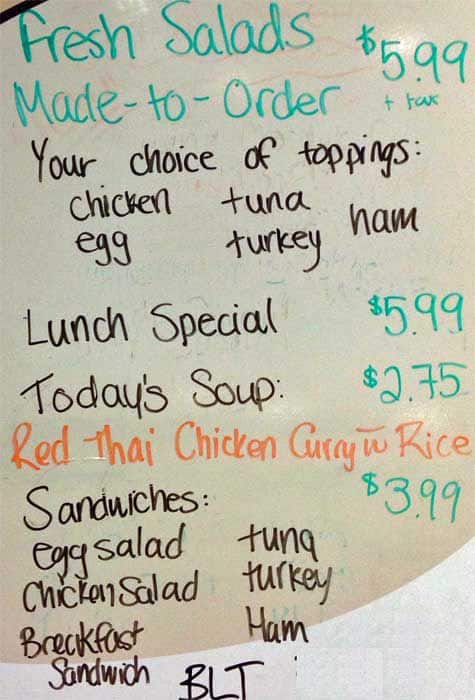 Fresh Salads $5.99
Made-to-Order + tax
Your choice of toppings:
chicken tuna ham
egg turkey
Lunch Special $5.99
Today's Soup: $2.75
Red Thai Chicken Curry w Rice
Sandwiches: $3.99
egg salad tuna
Chicken Salad turkey
Breckfast Ham
Sandwich BLT